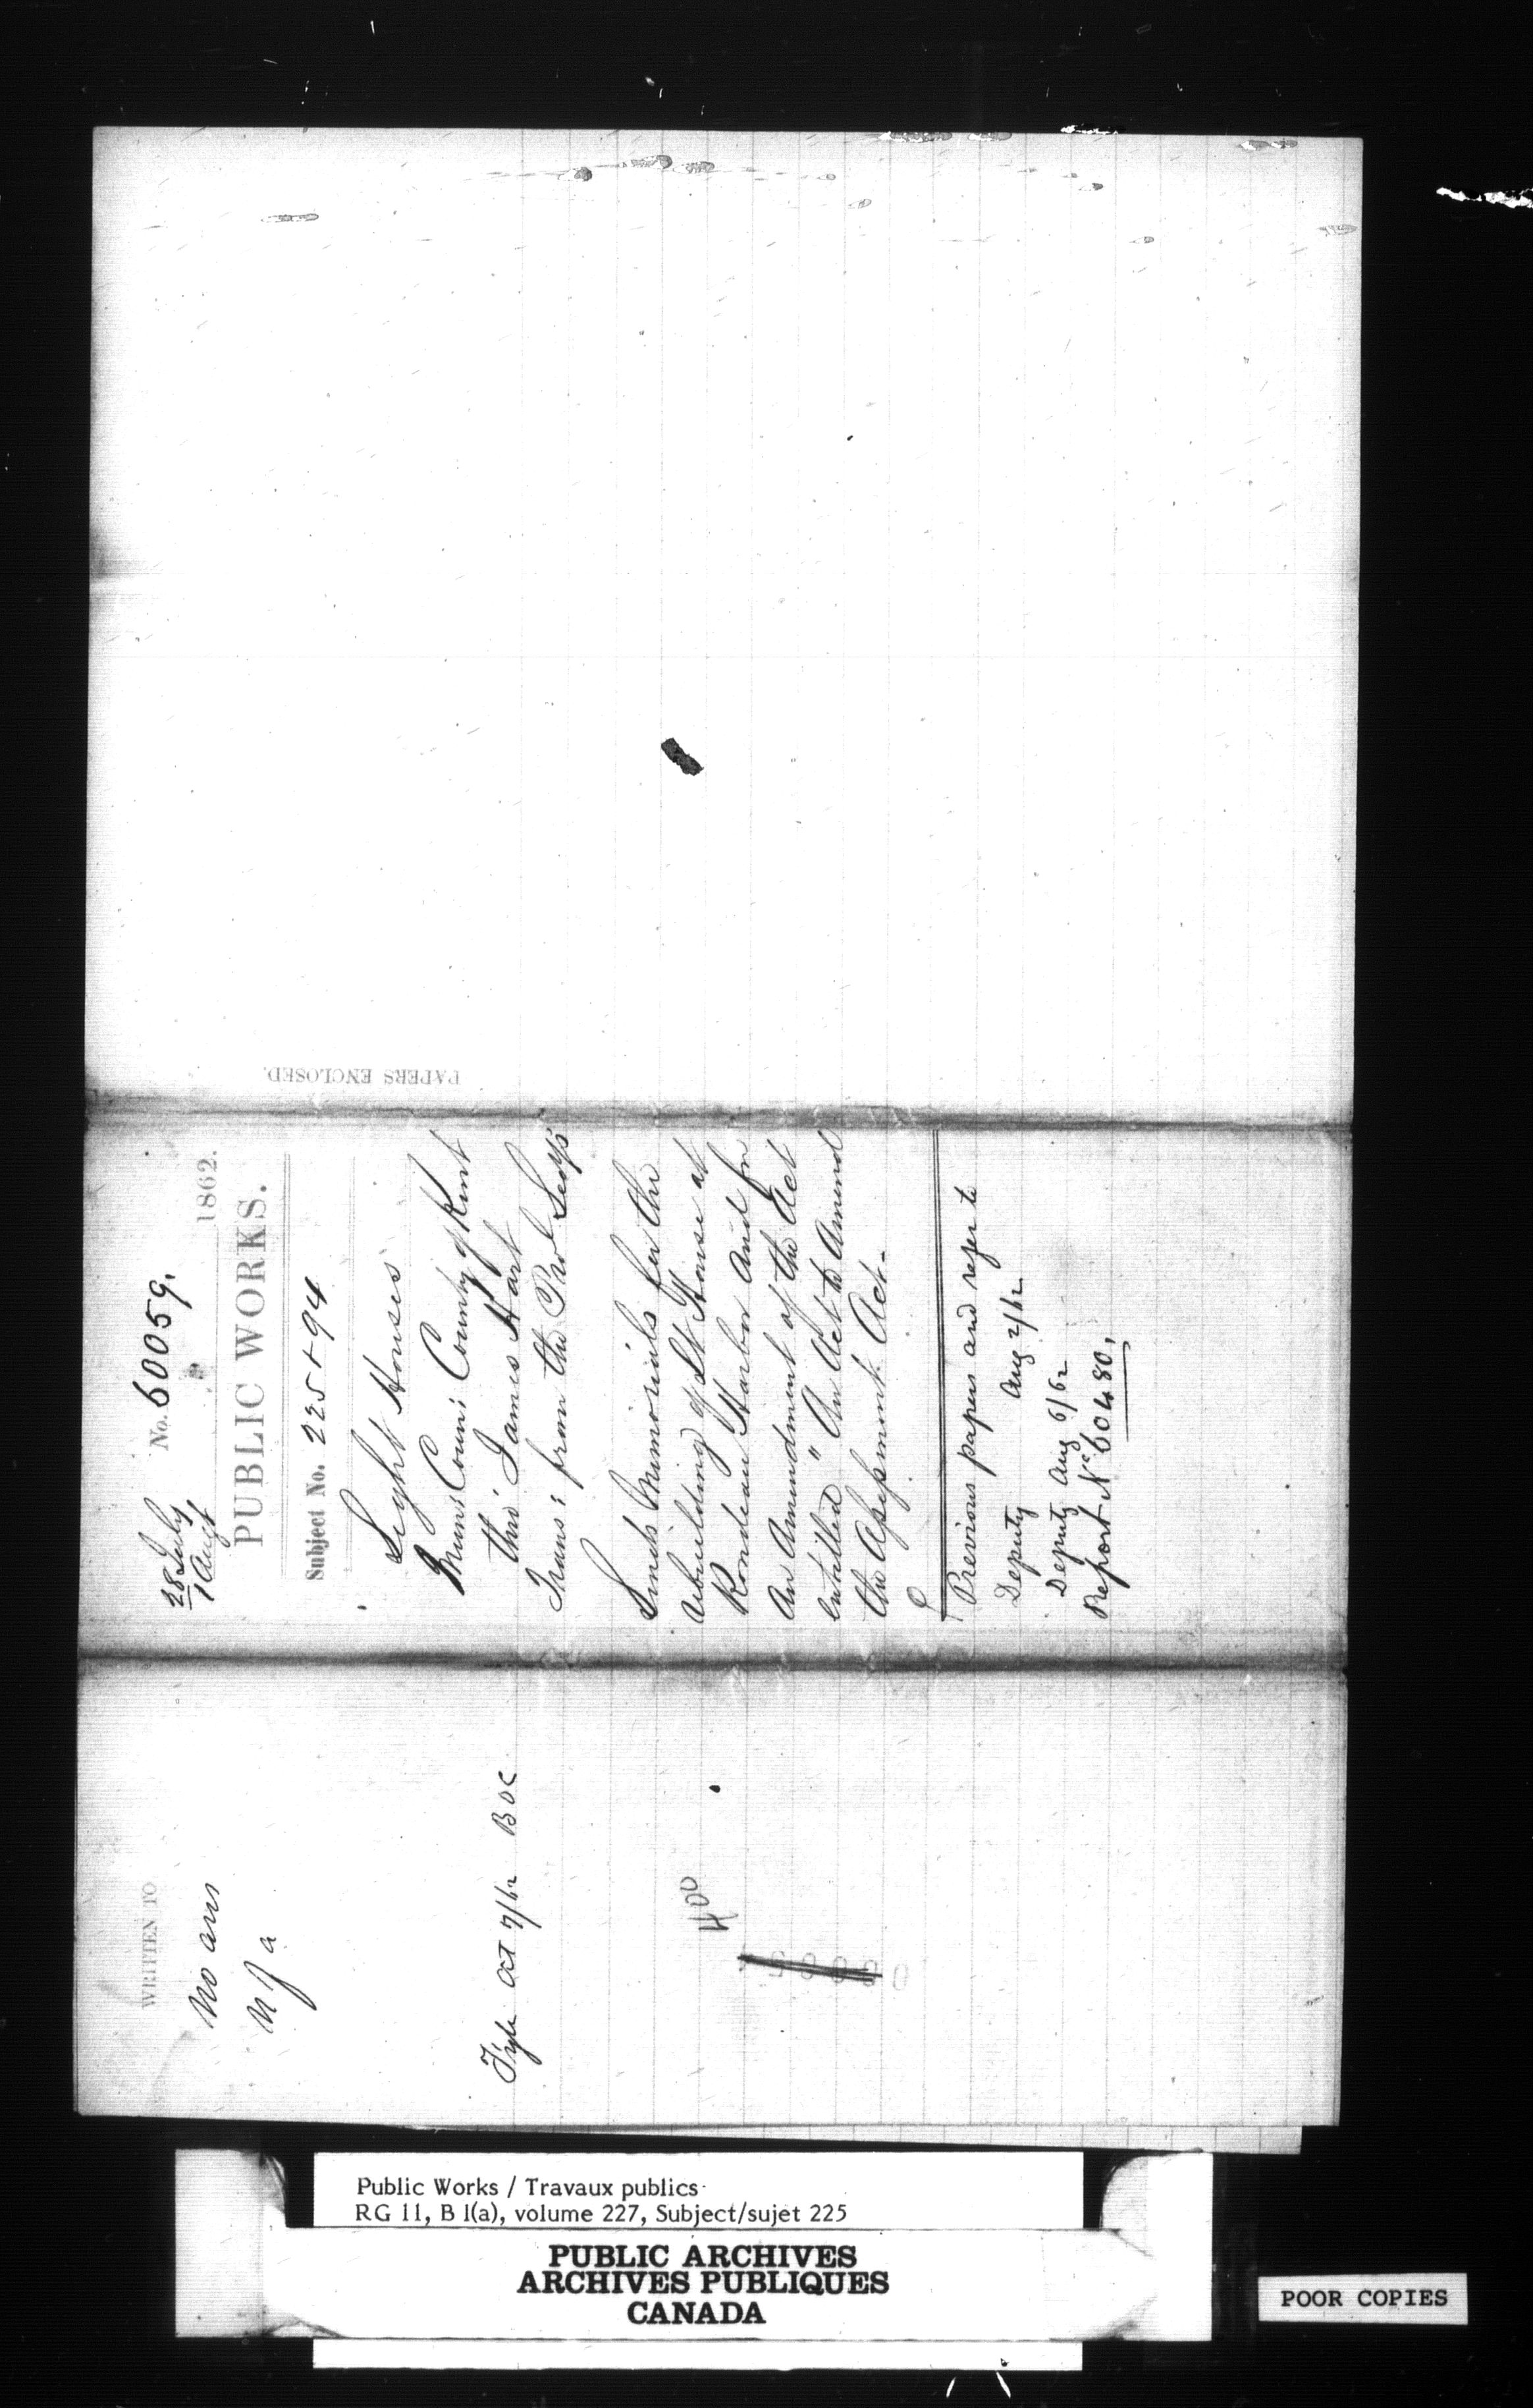 PAPERS ENCLOSED.
28 July
1 Augt
No. 60059.
1862.
PUBLIC WORKS.
Subject No. 225+94
Light Houses
Muni: Coun: County of Kent
thro' James Hart
Trans: from the Prov'l Secy's
Sends memorials for the
rebuilding of Lt House at
Rondeau Harbor and for
An Amendment of the Act
entitled "An Act to Amend
the Assessment Act.
Previous papers and refer to
Deputy Aug 2/62
Deputy Aug 6/62
Report No 60480.
WRITTEN TO
No ans
Fyle Oct 7/62 BOC
400
Public Works / Travaux publics
RG 11, B 1(a), volume 227, Subject/sujet 225
PUBLIC ARCHIVES
ARCHIVES PUBLIQUES
CANADA
POOR COPIES